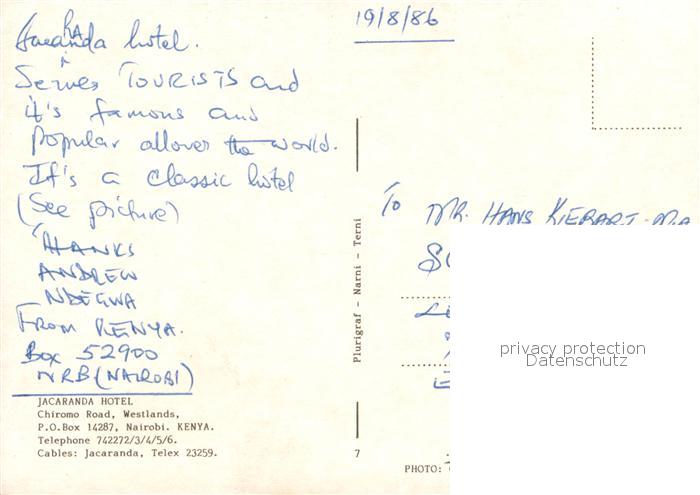 19/8/86
Jacaranda hotel.
Serves TOURISTS and
it's famous and
popular allover the world.
It's a classic hotel
(See picture)
THANKS
ANDREW
NDEGWA
FROM KENYA.
Box 52900
NRB (NAIROBI)
JACARANDA HOTEL
Chiromo Road, Westlands,
P.O.Box 14287, Nairobi. KENYA.
Telephone 742272/3/4/5/6.
Cables: Jacaranda, Telex 23259.
Plurigraf - Narni - Terni
7
To MR. HANS
privacy protection
Datenschutz
PHOTO: